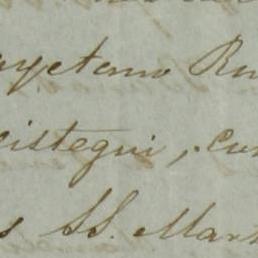 ayetano Ru
istegui, cu
s SS. Mart